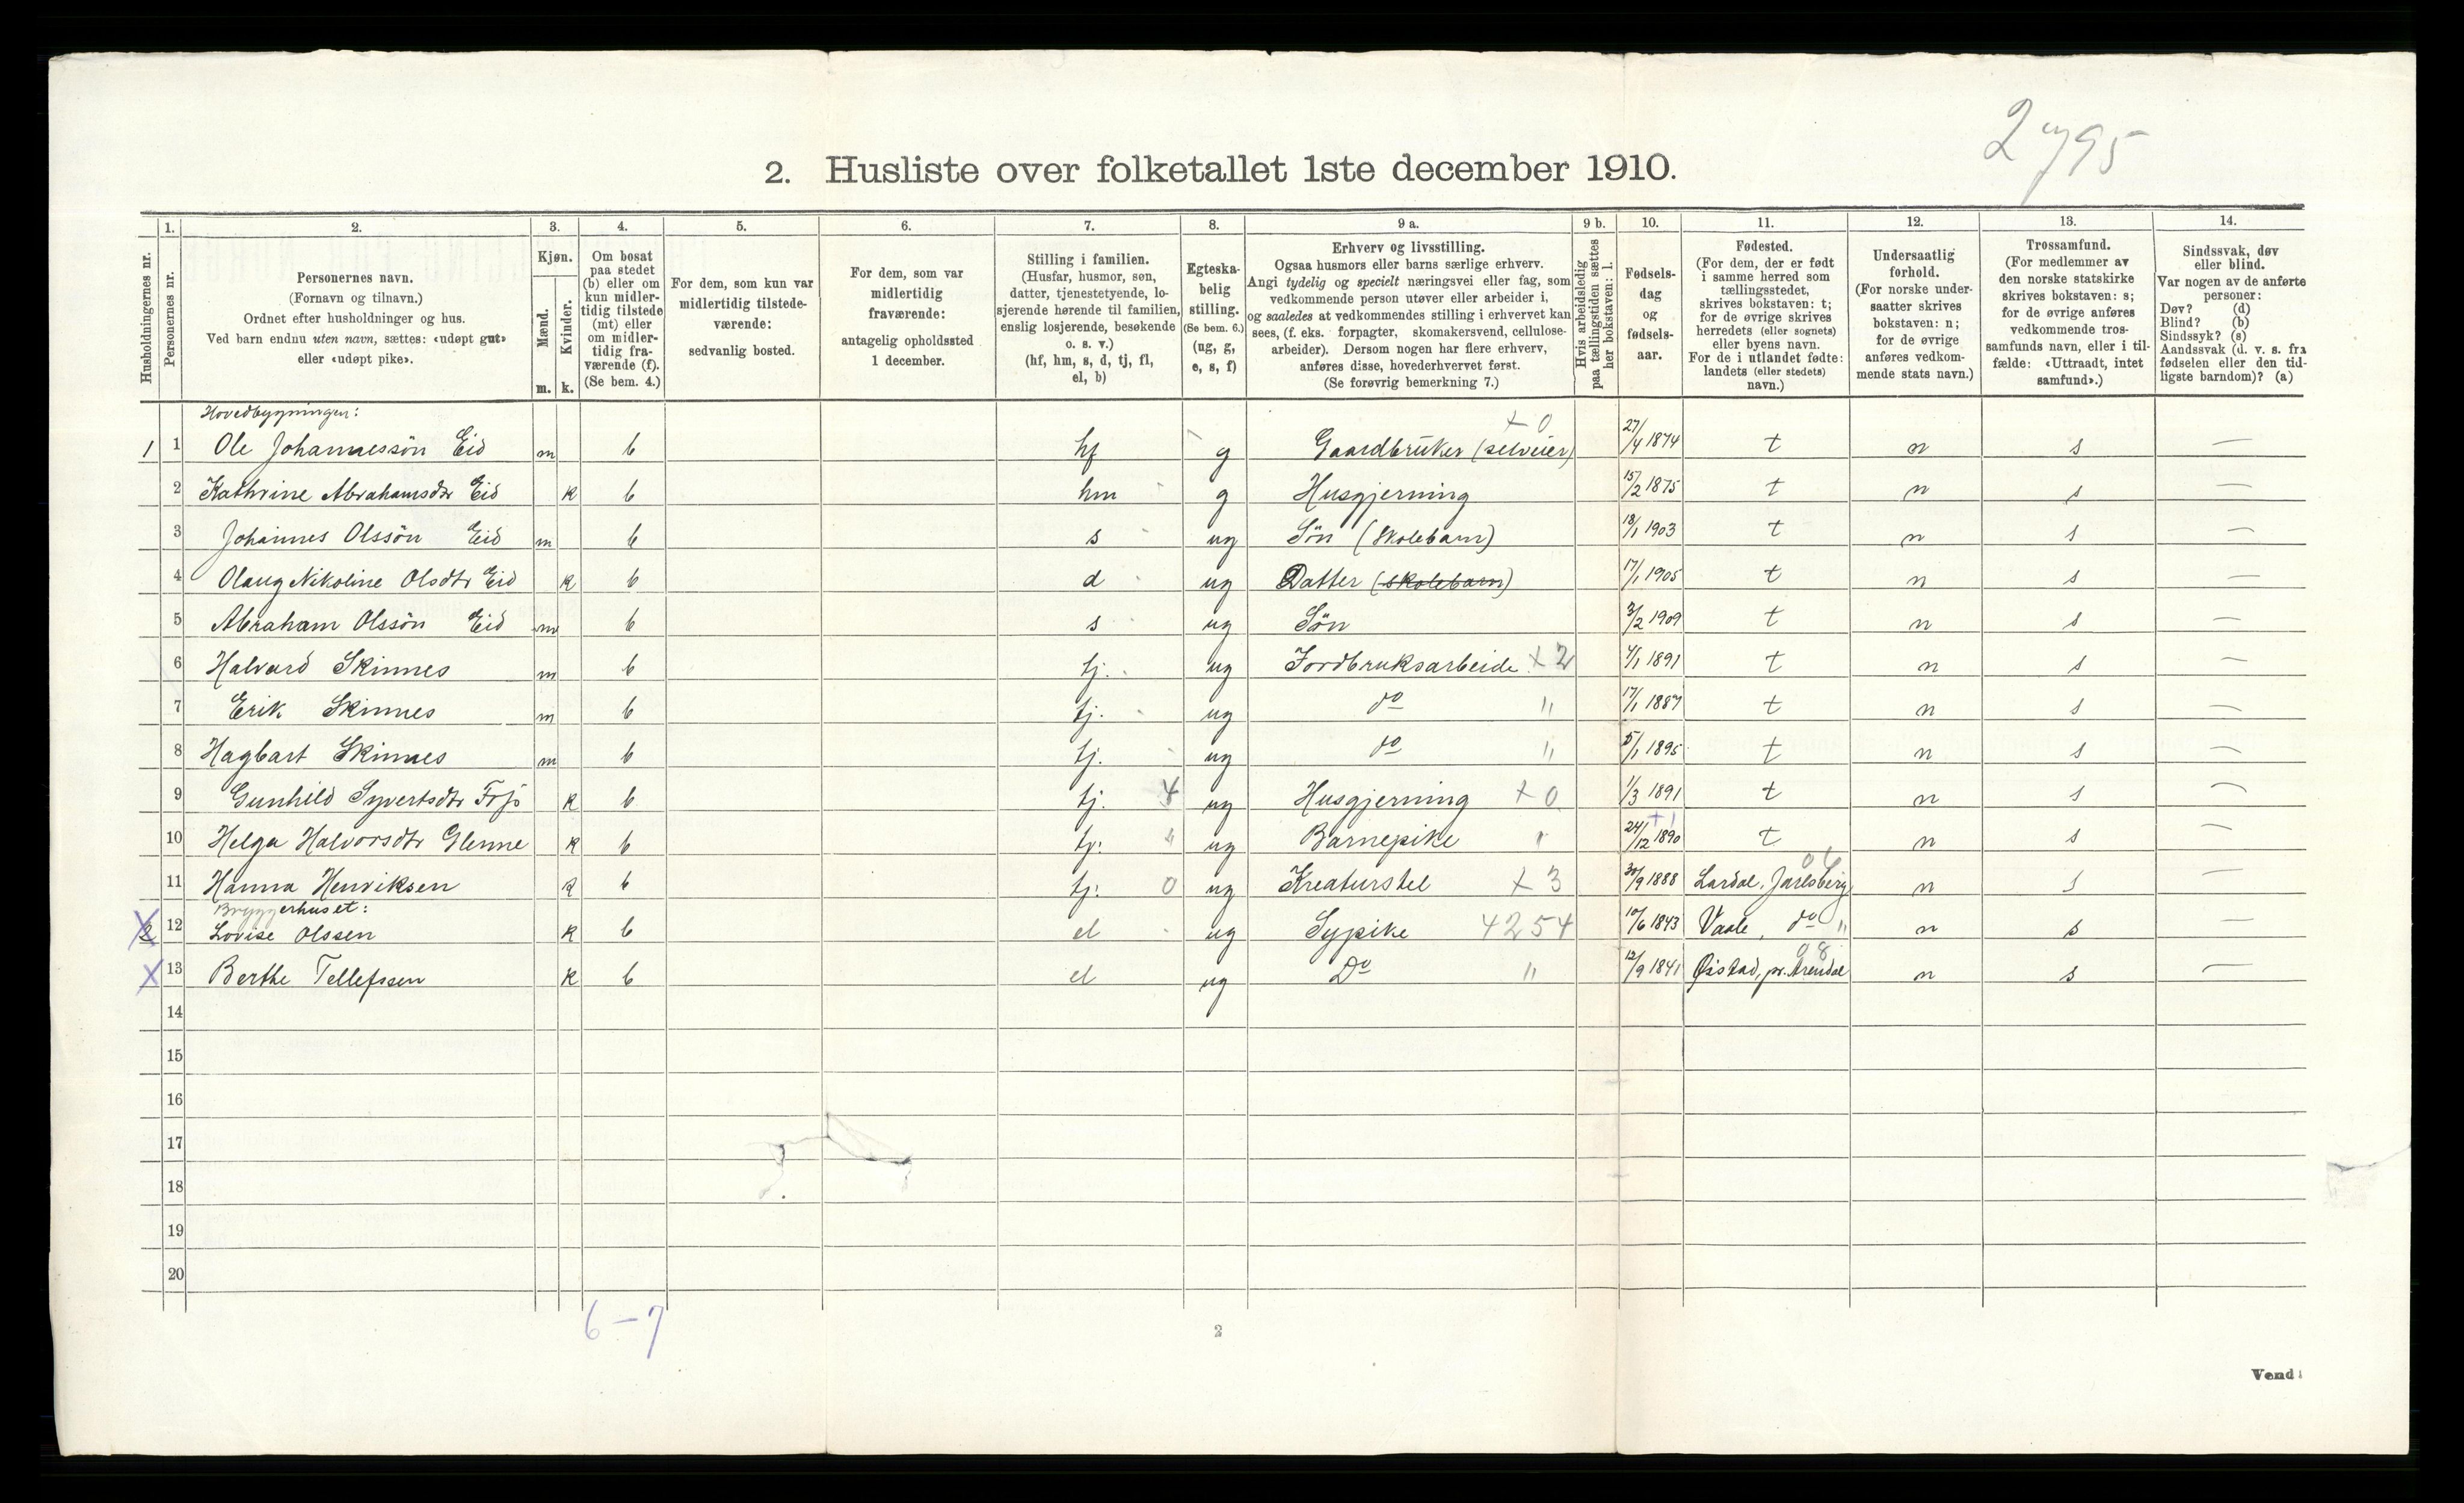 2795
2. Husliste over folketallet 1ste december 1910.
1. 2. 3. 4. 5. 6. 7. 8. 9 a. 9 b. 10. 11. 12. 13. 14.
Husholdningernes nr.
Personernes nr.
Personernes navn.
(Fornavn og tilnavn.)
Ordnet efter husholdninger og hus.
Ved barn endnu uten navn, sættes: «udøpt gut»
eller «udøpt pike».
Kjøn.
Mænd.
Kvinder.
m. k.
Om bosat
paa stedet
(b) eller om
kun midler-
tidig tilstede
(mt) eller
om midler-
tidig fra-
værende (f).
(Se bem. 4.)
For dem, som kun var
midlertidig tilstede-
værende:
sedvanlig bosted.
For dem, som var
midlertidig
fraværende:
antagelig opholdssted
1 december.
Stilling i familien.
(Husfar, husmor, søn,
datter, tjenestetyende, lo-
sjerende hørende til familien,
enslig losjerende, besøkende
o. s. v.)
(hf, hm, s, d, tj, fl,
el, b)
Egteska-
belig
stilling.
(Se bem. 6.)
(ug, g,
e, s, f)
Erhverv og livsstilling.
Ogsaa husmors eller barns særlige erhverv.
Angi tydelig og specielt næringsvei eller fag, som
vedkommende person utøver eller arbeider i,
og saaledes at vedkommendes stilling i erhvervet kan
sees, (f. eks. forpagter, skomakersvend, cellulose-
arbeider). Dersom nogen har flere erhverv,
anføres disse, hovederhvervet først.
(Se forøvrig bemerkning 7.)
Hvis arbeidsledig
paa tællingstiden sættes
her bokstaven: l.
Fødsels-
dag
og
fødsels-
aar.
Fødested.
(For dem, der er født
i samme herred som
tællingsstedet,
skrives bokstaven: t;
for de øvrige skrives
herredets (eller sognets)
eller byens navn.
For de i utlandet fødte:
landets (eller stedets)
navn.)
Undersaatlig
forhold.
(For norske under-
saatter skrives
bokstaven: n;
for de øvrige
anføres vedkom-
mende stats navn.)
Trossamfund.
(For medlemmer av
den norske statskirke
skrives bokstaven: s;
for de øvrige anføres
vedkommende tros-
samfunds navn, eller i til-
fælde: «Uttraadt, intet
samfund».)
Sindssvak, døv
eller blind.
Var nogen av de anførte
personer:
Døv? (d)
Blind? (b)
Sindssyk? (s)
Aandssvak (d. v. s. fra
fødselen eller den tid-
ligste barndom)? (a)
Hovedbygningen:
1 1 Ole Johannessön Eid m b hf g Gaardbruker (selveier) x 0 27/4 1874 t n s —
2 Kathrine Abrahamsdtr Eid k b hm g Husgjerning 15/2 1875 t n s —
3 Johannes Olssön Eid m b s ug Sön (Skolebarn) 18/1 1903 t n s —
4 Olaug Nikoline Olsdtr Eid k b d ug Datter (skolebarn) 17/1 1905 t n s —
5 Abraham Olssön Eid m b s ug Sön 3/2 1909 t n s —
6 Halvard Skinnes m b tj. ug Jordbruksarbeide x 2 4/1 1891 t n s —
7 Erik Skinnes m b tj. ug do " 17/1 1887 t n s —
8 Hagbart Skinnes m b tj. ug do " 5/1 1895 t n s —
9 Gunhild Syvertsdtr k b tj. 4 ug Husgjerning x 0 1/3 1891 t n s —
10 Helga Halvorsdtr Glenne k b tj. " ug Barnepike " 24/12 1890 +1 t n s —
11 Hanna Henriksen k b tj. 0 ug Kreaturstel x 3 30/9 1888 Lardal, Jarlsberg 06 n s —
Bryggerhuset:
2 12 Lovise Olssen k b el ug Sypike 4254 10/6 1843 Vaale, do " n s —
X 13 Berthe Tellefssen k b el ug Do " 12/9 1841 Øistad, pr. Arendal 08 n s —
14
15
16
17
18
19
20
6 — 7
2
Vend!